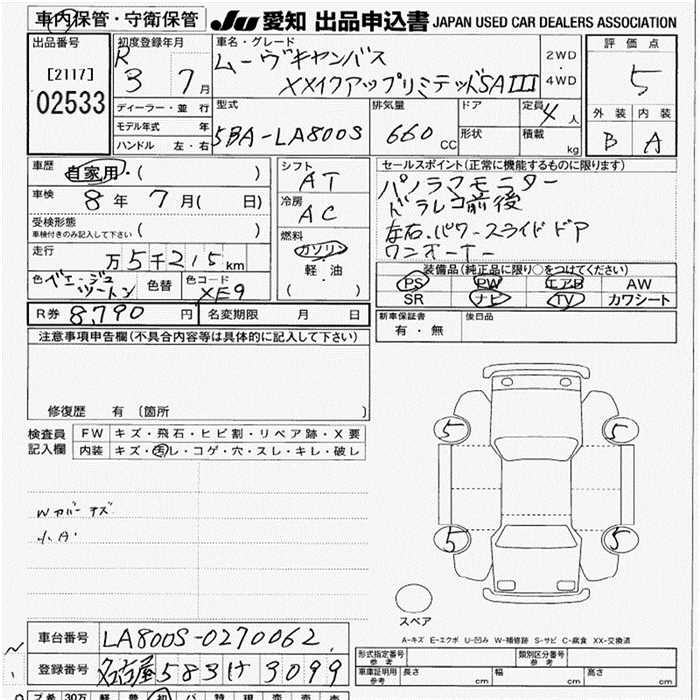 車内保管・守衛保管 JU 愛知 出品申込書 JAPAN USED CAR DEALERS ASSOCIATION
出品番号 初度登録年月 車名・グレード 評価点
[2117] R 3 7月 ムーヴキャンバス 2WD 5
02533 XXメイクアップリミテッドSAIII 4WD
ディーラー・並行 型式 排気量 ドア 定員 4人 外装 内装
モデル年式 年 5BA-LA800S 660CC 形状 積載 kg B A
ハンドル 左・右
車歴 自家用・( ) シフト AT セールスポイント(正常に機能するものに限ります)
車検 8年7月( 日) 冷房 AC パノラマモニター
受検形態 ( ) ドラレコ前後
車検付きのみ記入して下さい 燃料 左右パワースライドドア
走行 万5千215km ガソリン ワンオーナー
軽・油 装備品(純正品に限り○をつけてください)
色 ベージュツートン 色替 色コード XE9 ( ・ ) PS PW エアB AW
SR ナビ TV カワシート
R券 8,790円 名変期限 月 日 新車保証書 有・無 後日品
注意事項申告欄(不具合内容等は具体的に記入して下さい)
修復歴 有 〔箇所 〕
検査員 FW キズ・飛石・ヒビ割・リペア跡・X要
記入欄 内装 キズ・汚レ・コゲ・穴・スレ・キレ・破レ
5 5
Wカバーキズ
小A
5 5
スペア
A-キズ E-エクボ U-凹み W-補修跡 S-サビ C-腐食 XX-交換済
車台番号 LA800S-0270062
形式指定番号 参考 類別区分番号 参考
登録番号 名古屋 583 け 3099
車庫証明用 参考 長さ cm 幅 cm 高さ cm